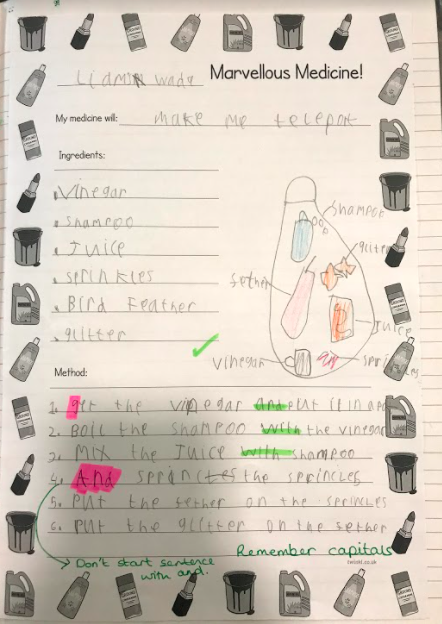 Liam wade Marvellous Medicine!
My medicine will: make me teleport
Ingredients:
Vinegar
shampoo
Juice
sprinkles
Bird Feather
glitter
shampoo
glitter
fether
Juice
Vinegar
sprinkles
Method:
1. get the vinegar and put it in a pot
2. Boil the shampoo with the vinegar
3. Mix the Juice with shampoo
4. And the sprincles
5. Put the fether on the sprincles
6. Put the glitter on the fether
Remember capitals
Don't start sentence
with and.
twinkl.co.uk